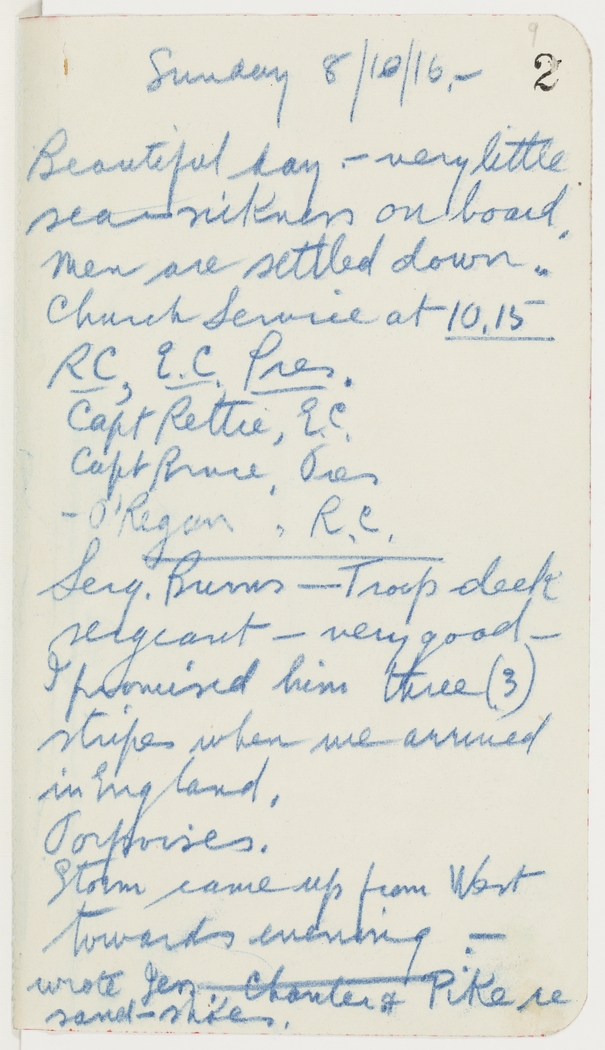 9
2
Sunday 8/10/16.-
Beautiful day. - very little
sea-sickness on board,
Men are settled down..
Church Service at 10.15
RC, E.C. Pres.
Capt Rettie, E.C.
Capt Bruce, Pres
- O'Regan, R.C.
Serg. Burns - Troop deck
sergeant - very good -
I promised him three (3)
stripes when we arrived
in England,
Porpoises.
Storm came up from West
towards evening. -
wrote Jess. Charter & Pike re
sand-shoes.